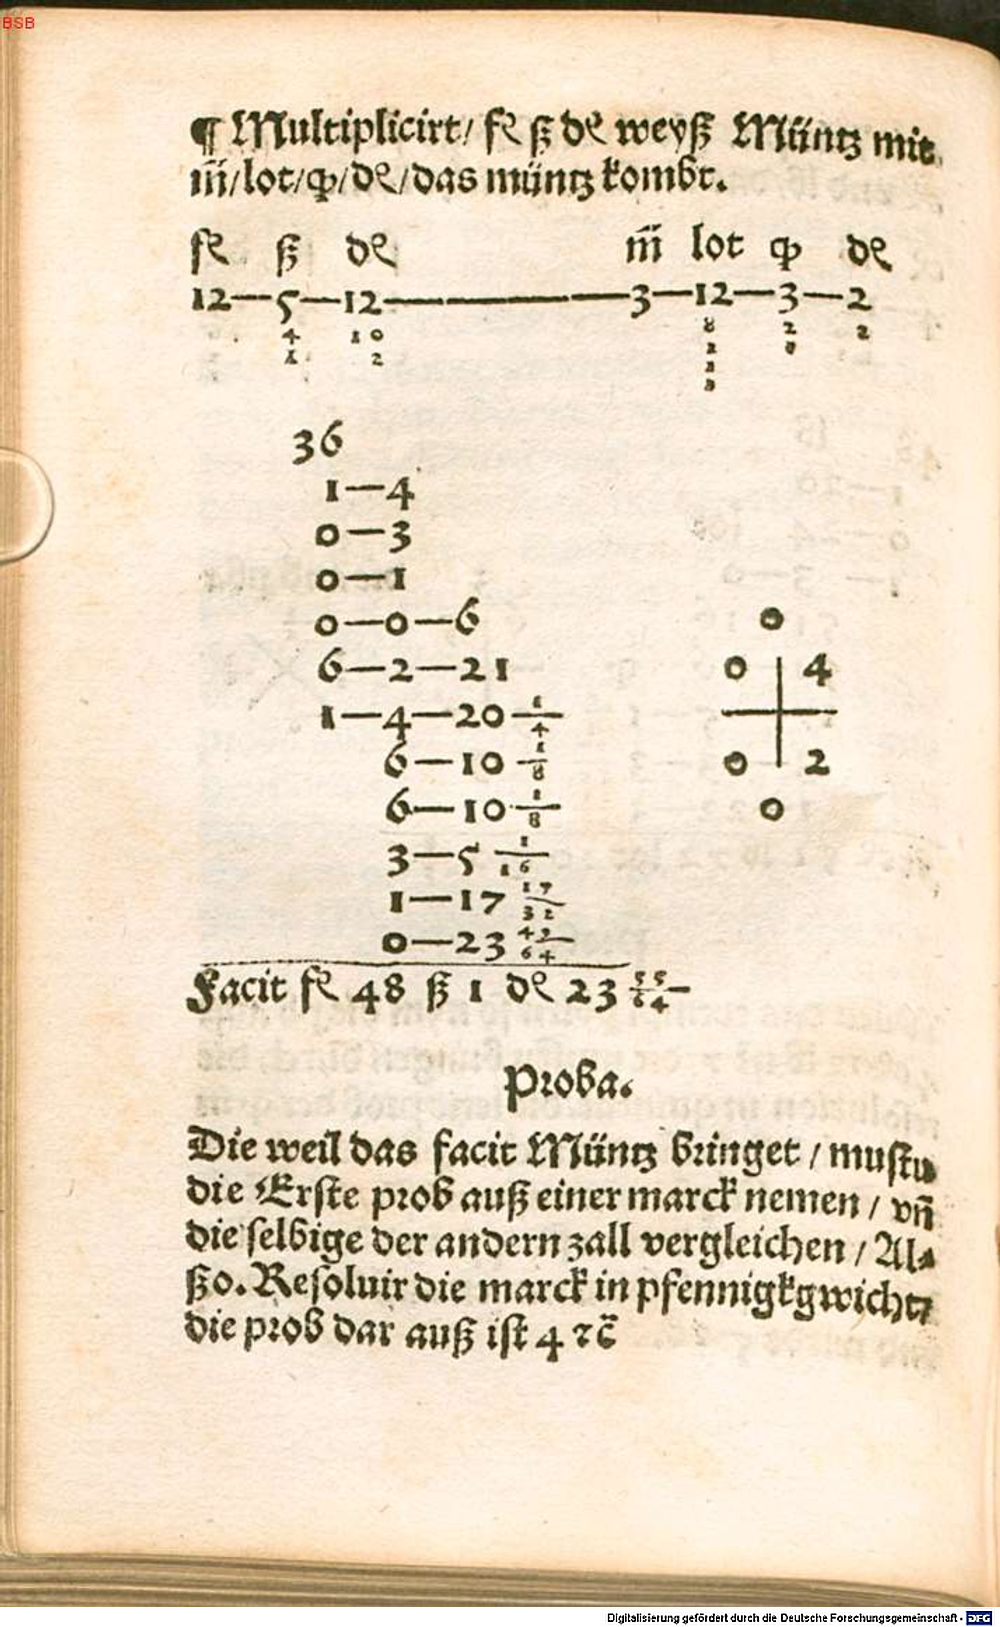 BSB
¶ Multiplicirt/ fl ß dl weyß Müntz mit
m̃/lot/q̃/dl/das müntz kombt.
fl ß dl m̃ lot q̃ dl
12—5—12————3—12—3—2
4 10 8 2 2
1 2 2
36
1—4
0—3
0—1
0—0—6
6—2—21
1—4—20 1/4
6—10 1/8
6—10 1/8
3—5 1/16
1—17 17/32
0—23
0
0 4
0 2
0
Facit fl 48 ß 1 dl 23 55/64
Proba.
Die weil das facit Müntz bringet / mustu
die Erste prob auß einer marck nemen / vñ
die selbige der andern zall vergleichen / Al⸗
ßo. Resoluir die marck in pfennigkgwicht/
die prob dar auß ist 4 ⁊c̃
Digitalisierung gefördert durch die Deutsche Forschungsgemeinschaft - DFG